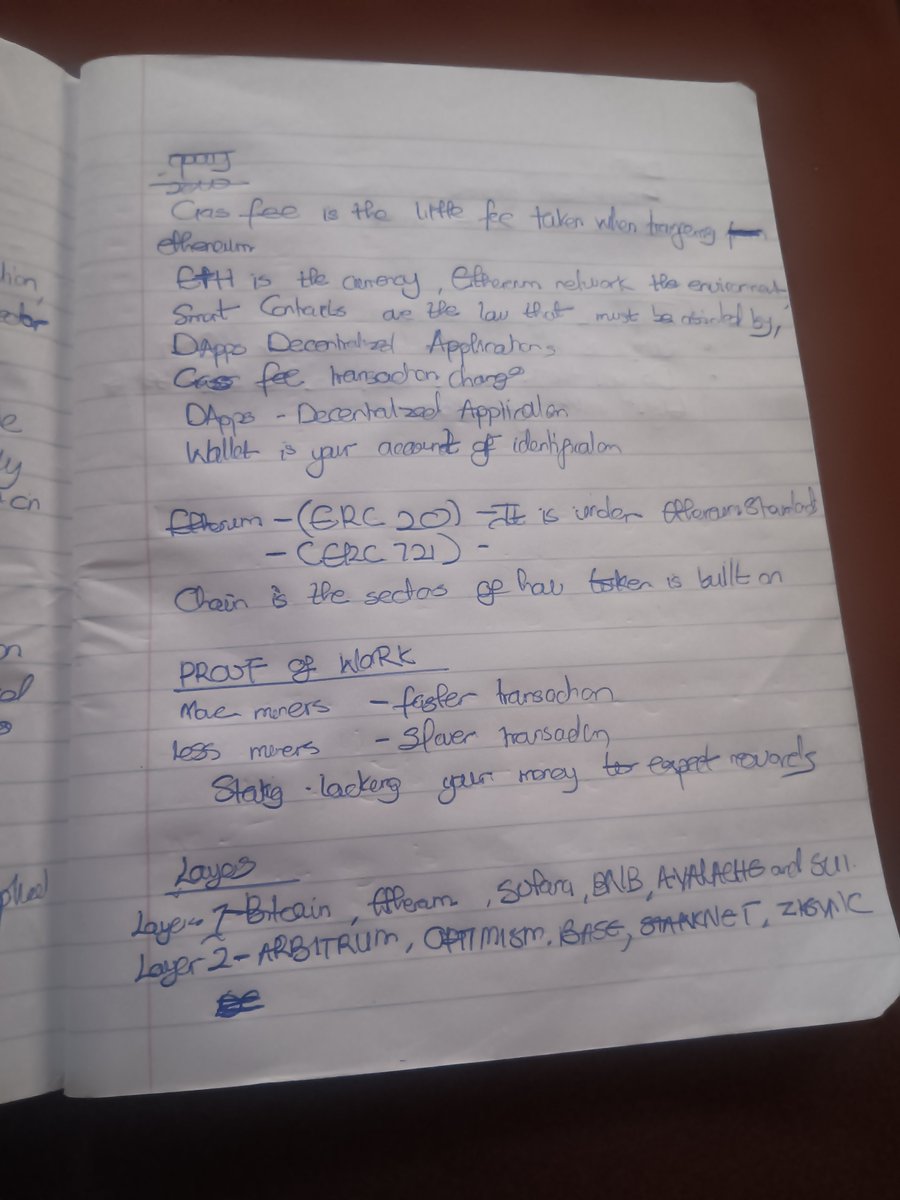 Gas fee is the little fee taken when
ethereum
ETH is the currency, Ethereum network the environment
Smart Contacts are the law that must be abided by,
DApps Decentralized Applications
Gas fee transaction charge
DApps - Decentralized Application
Wallet is your account of identification
Ethereum - (ERC 20) - It is under Ethereum Standard
- (ERC 721) -
Chain is the sectors of how token is built on
PROOF OF WORK
More miners - faster transaction
less miners - Slower transaction
Staking - locking your money to expect rewards
Layers
Layer 1 - Bitcoin, Ethereum, Solana, BNB, AVALACHE and SUI.
Layer 2 - ARBITRUM, OPTIMISM, BASE, STARKNET, ZKSYNC
hion,
ector
e
ly
on